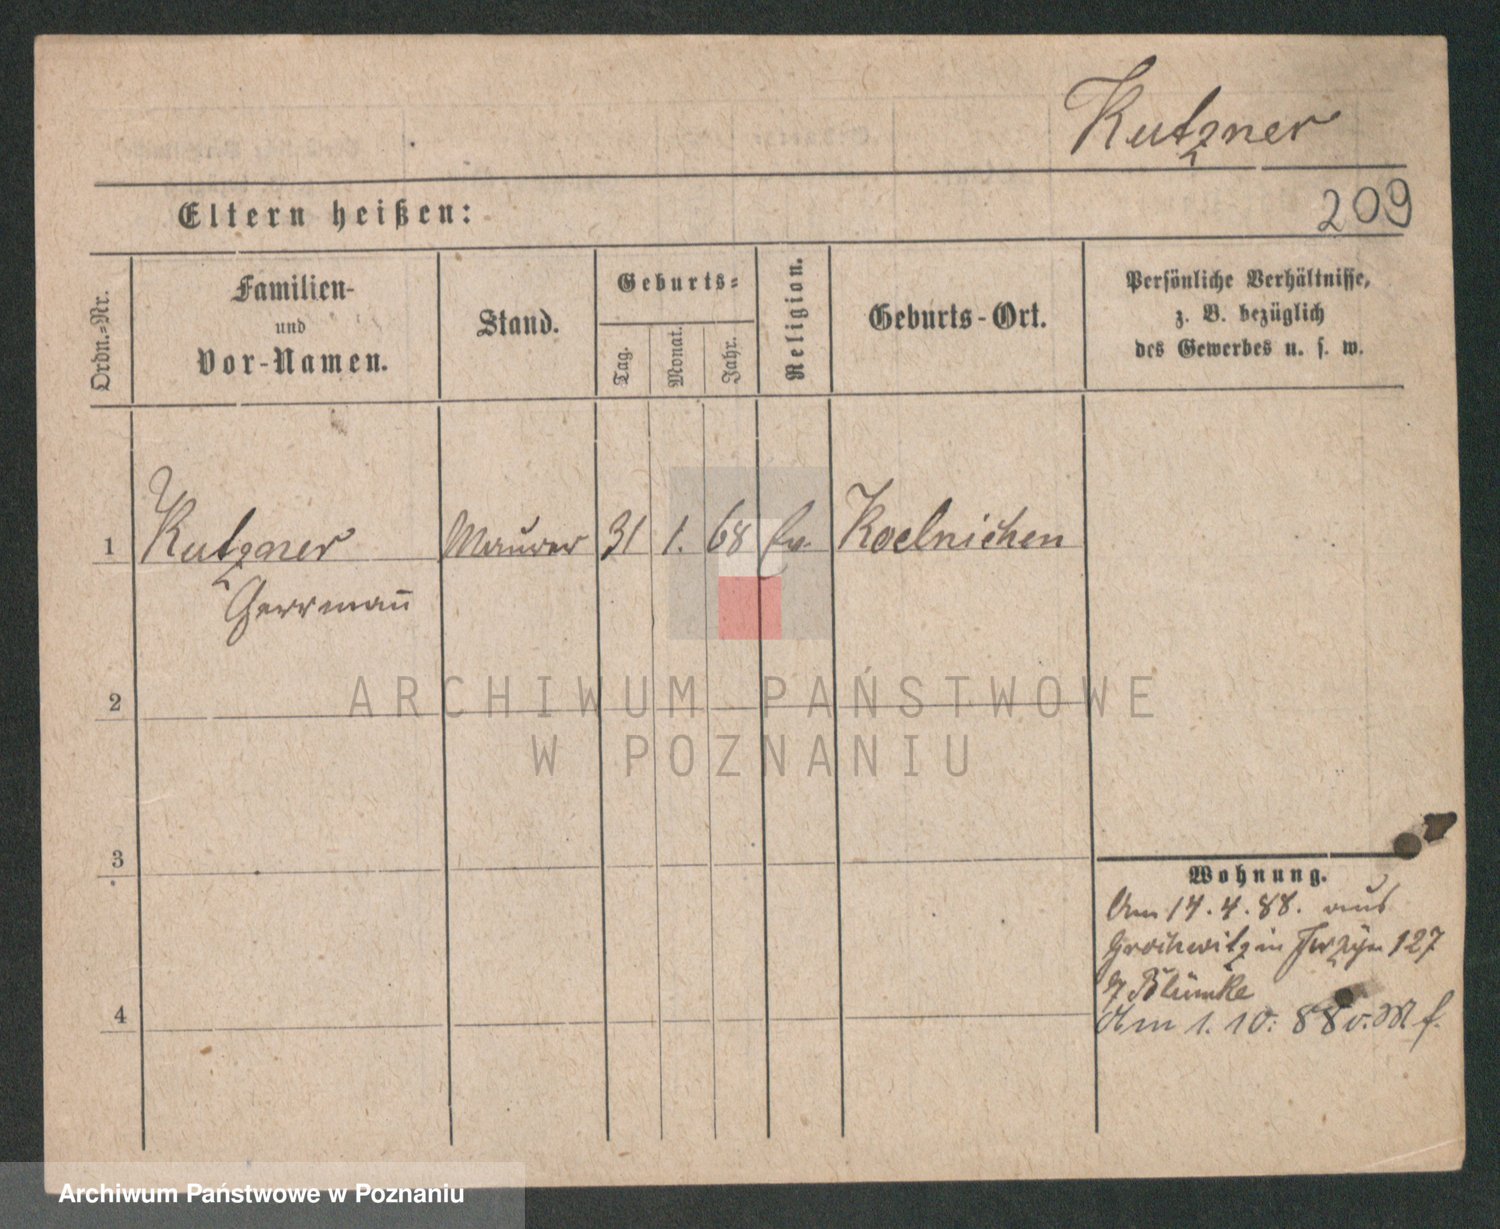 Kutzner
209
Eltern heißen:
Ordn.-Nr.
Familien-
und
Vor-Namen.
Stand.
Geburts-
Tag.
Monat.
Jahr.
Religion.
Geburts-Ort.
Persönliche Verhältnisse,
z. B. bezüglich
des Gewerbes u. s. w.
1 Kutzner Maurer 31 1. 68 Ev. Koelnichen
Herrmañ
ARCHIWUM PAŃSTWOWE
W POZNANIU
2
3
4
Wohnung.
Am 14.4.88. aus
Grochwitz in 127
Blümke
Am 1. 10. 88 v.
Archiwum Państwowe w Poznaniu